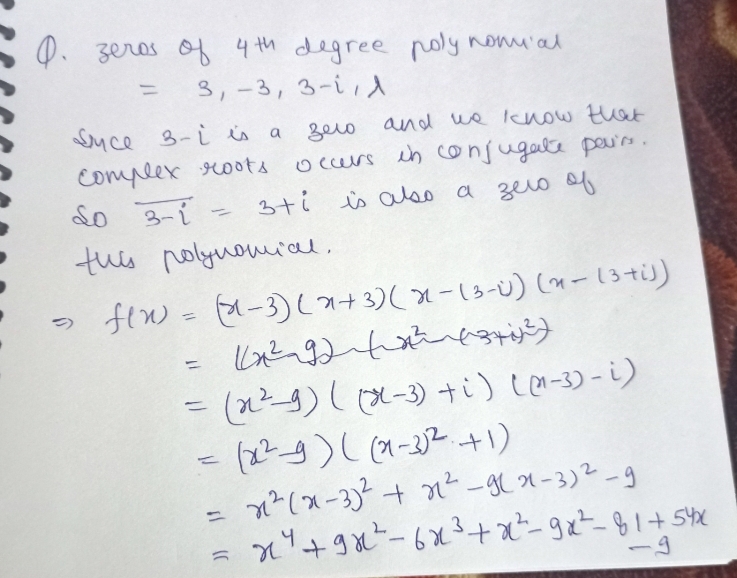 Q. zeros of 4th degree polynomial
= 3, -3, 3-i, λ
Since 3-i is a zero and we know that
complex roots occurs in conjugate pairs.
So \overline{3-i} = 3+i is also a zero of
this polynomial.
⇒ f(x) = (x-3)(x+3)(x-(3-i))(x-(3+i))
=
= (x²-9)((x-3)+i)((x-3)-i)
= (x²-9)((x-3)²+1)
= x²(x-3)² + x² - 9(x-3)² - 9
= x⁴ + 9x² - 6x³ + x² - 9x² - 81 + 54x
- 9